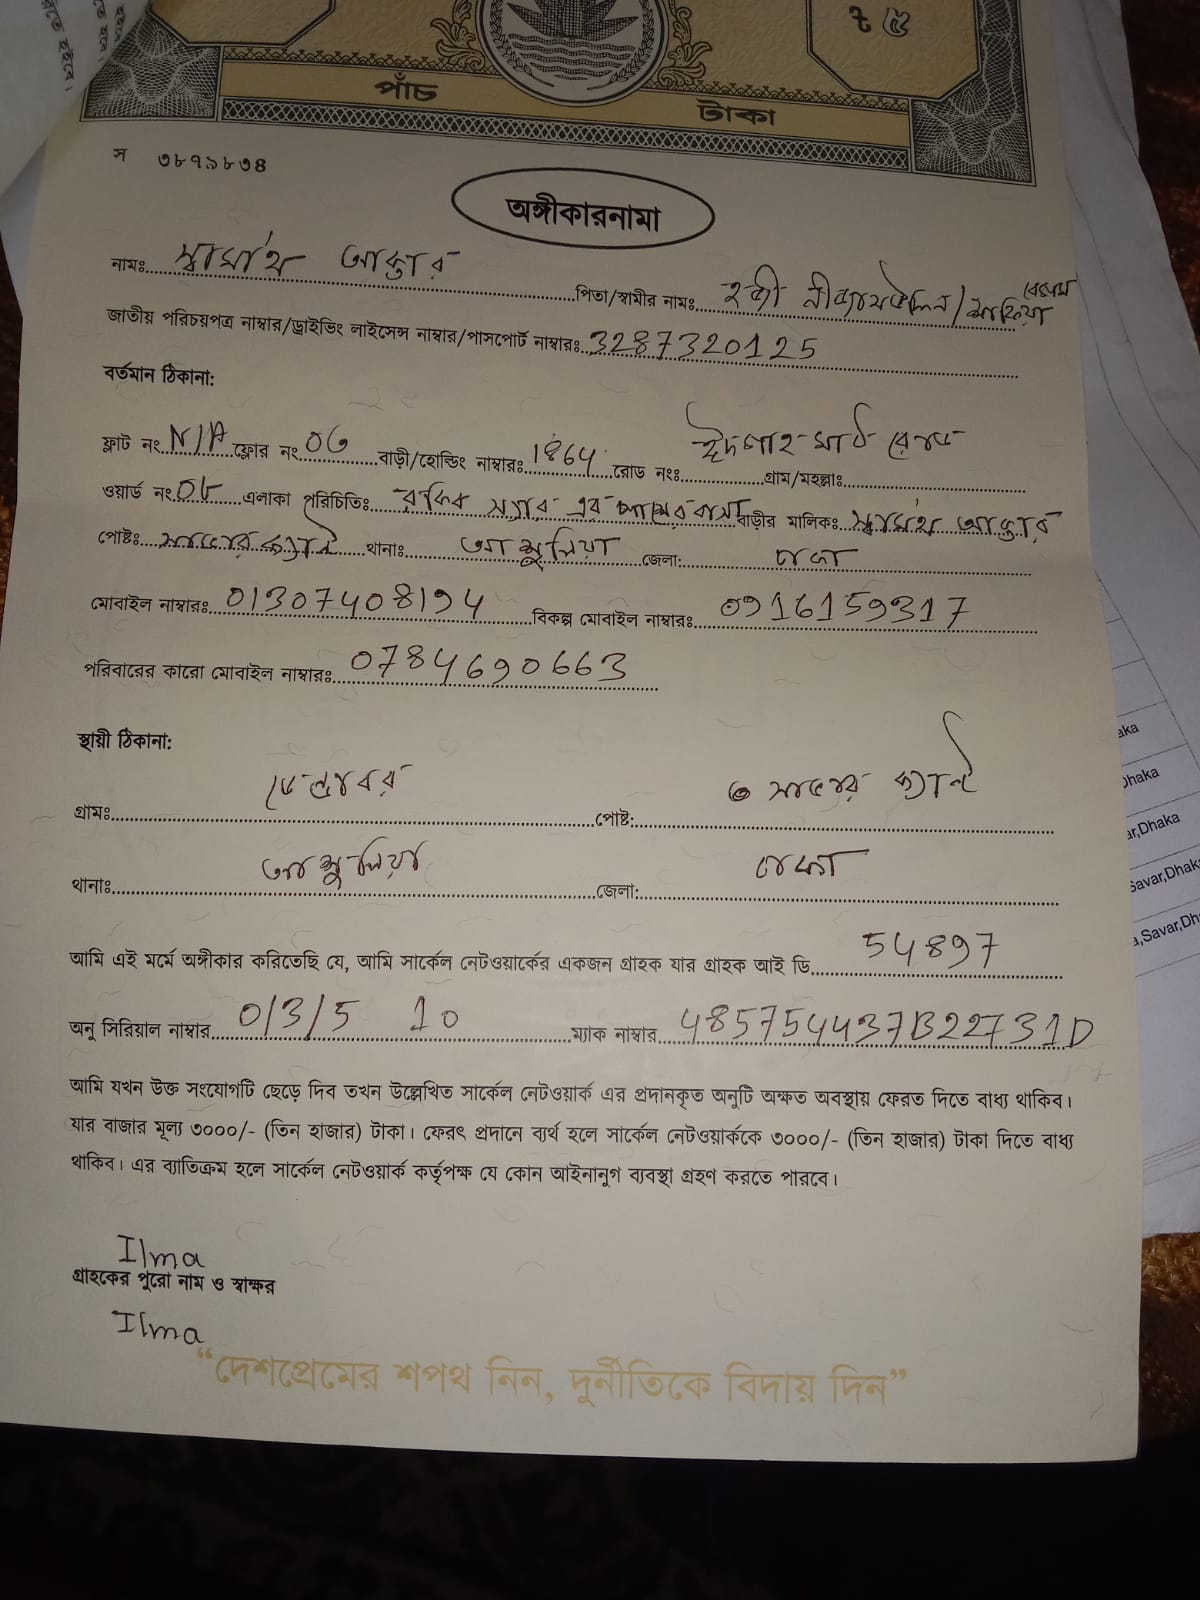 ৳ ৫
পাঁচ টাকা
স ৩৮৭৯৮৩৪
অঙ্গীকারনামা
নামঃ আক্তার পিতা/স্বামীর নামঃ
জাতীয় পরিচয়পত্র নাম্বার/ড্রাইভিং লাইসেন্স নাম্বার/পাসপোর্ট নাম্বারঃ 3287320125
বর্তমান ঠিকানা:
ফ্লাট নং N/A ফ্লোর নং বাড়ী/হোল্ডিং নাম্বারঃ 1864 রোড নংঃ গ্রাম/মহল্লাঃ
ওয়ার্ড নং এলাকা পরিচিতিঃ বাড়ীর মালিকঃ আক্তার
পোষ্টঃ থানাঃ আশুলিয়া জেলা: ঢাকা
মোবাইল নাম্বারঃ 01307408194 বিকল্প মোবাইল নাম্বারঃ
পরিবারের কারো মোবাইল নাম্বারঃ 0784690663
স্থায়ী ঠিকানা:
গ্রামঃ পোষ্ট:
থানাঃ আশুলিয়া জেলা: ঢাকা
আমি এই মর্মে অঙ্গীকার করিতেছি যে, আমি সার্কেল নেটওয়ার্কের একজন গ্রাহক যার গ্রাহক আই ডি 54897
অনু সিরিয়াল নাম্বার 0/3/5 10 ম্যাক নাম্বার 485754437B22731D
আমি যখন উক্ত সংযোগটি ছেড়ে দিব তখন উল্লেখিত সার্কেল নেটওয়ার্ক এর প্রদানকৃত অনুটি অক্ষত অবস্থায় ফেরত দিতে বাধ্য থাকিব।
যার বাজার মূল্য ৩০০০/- (তিন হাজার) টাকা। ফেরৎ প্রদানে ব্যর্থ হলে সার্কেল নেটওয়ার্ককে ৩০০০/- (তিন হাজার) টাকা দিতে বাধ্য
থাকিব। এর ব্যাতিক্রম হলে সার্কেল নেটওয়ার্ক কর্তৃপক্ষ যে কোন আইনানুগ ব্যবস্থা গ্রহণ করতে পারবে।
Ilma
গ্রাহকের পুরো নাম ও স্বাক্ষর
Ilma
“দেশপ্রেমের শপথ নিন, দুর্নীতিকে বিদায় দিন”